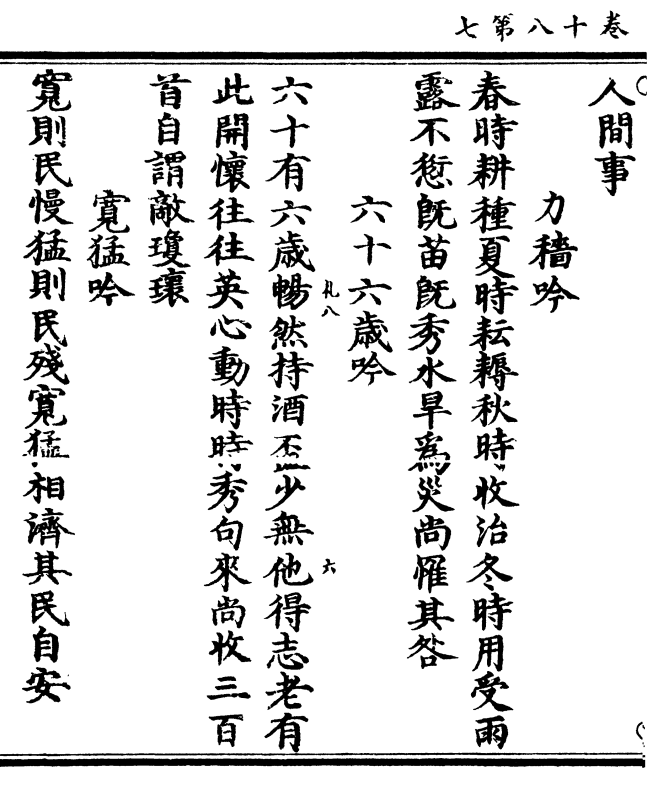 卷十八第七
人間事
力穡吟
春時耕種夏時耘耨秋時收治冬時用受雨
露不愆旣苗旣秀水旱爲災尚罹其咎
六十六歲吟
六十有六歲暢然持酒盃少無他得志老有
札八
六
此開懷往往英心動時時秀句來尚收三百
首自謂敵瓊瓌
寬猛吟
寬則民慢猛則民殘寬猛相濟其民自安